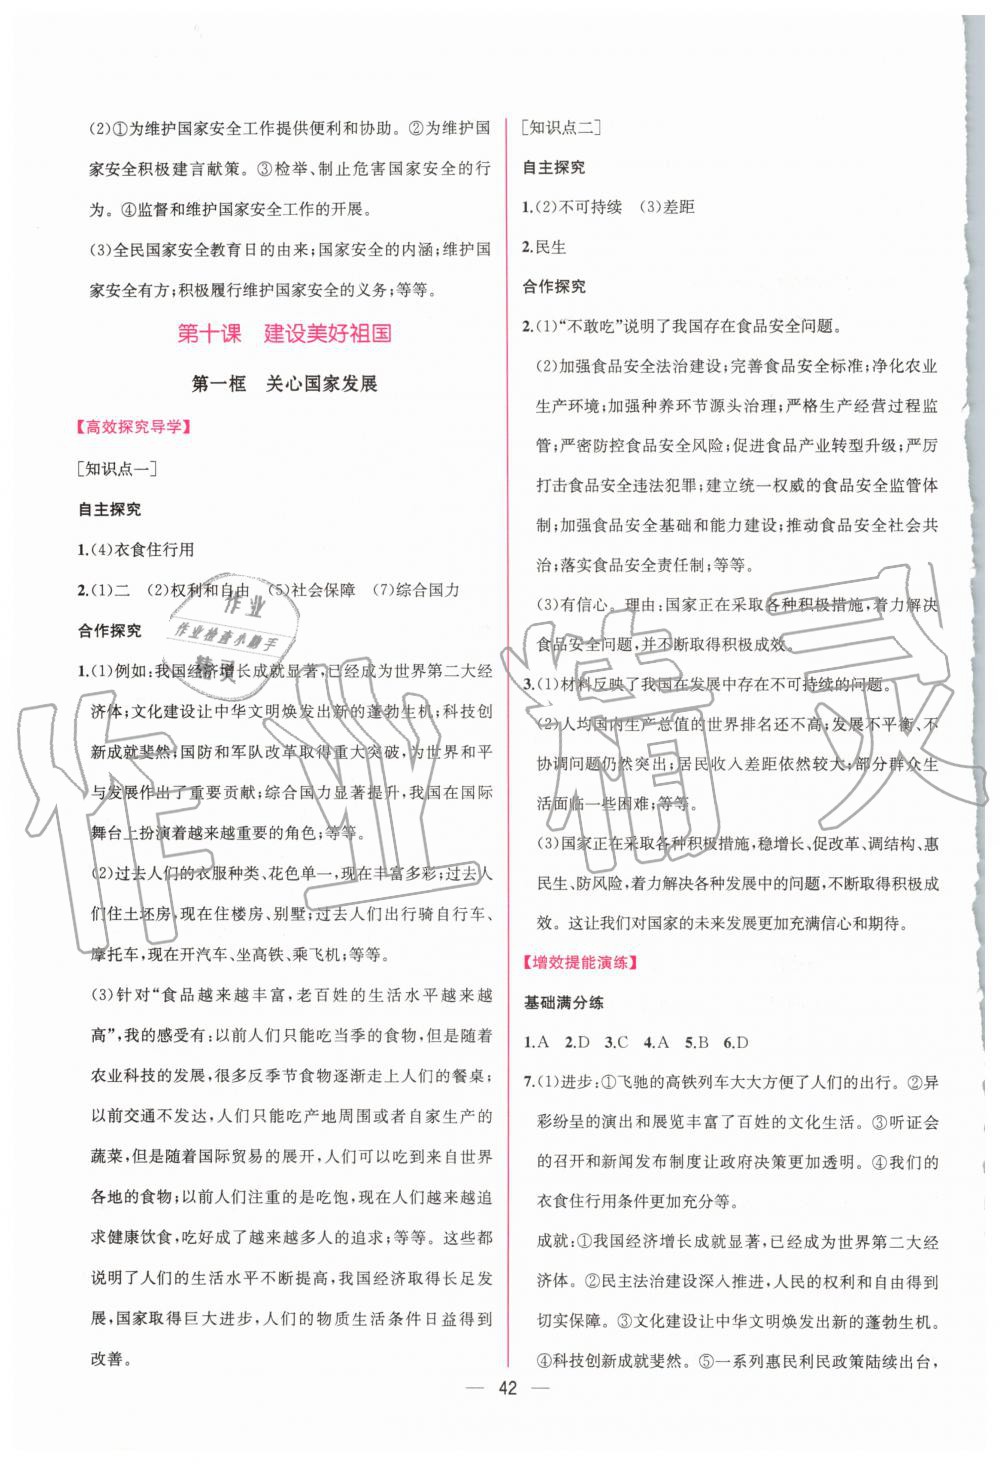 (2)①为维护国家安全工作提供便利和协助。②为维护国
家安全积极建言献策。③检举、制止危害国家安全的行
为。④监督和维护国家安全工作的开展。
(3)全民国家安全教育日的由来;国家安全的内涵;维护国
家安全有方;积极履行维护国家安全的义务;等等。
第十课 建设美好祖国
第一框 关心国家发展
【高效探究导学】
[知识点一]
自主探究
1.(4)衣食住行用
2.(1)二 (2)权利和自由 (5)社会保障 (7)综合国力
合作探究
1.(1)例如:我国经济增长成就显著,已经成为世界第二大经
济体;文化建设让中华文明焕发出新的蓬勃生机;科技创
新成就斐然;国防和军队改革取得重大突破,为世界和平
与发展作出了重要贡献;综合国力显著提升,我国在国际
舞台上扮演着越来越重要的角色;等等。
(2)过去人们的衣服种类、花色单一,现在丰富多彩;过去人
们住土坯房,现在住楼房、别墅;过去人们出行骑自行车、
摩托车,现在开汽车、坐高铁、乘飞机;等等。
(3)针对“食品越来越丰富,老百姓的生活水平越来越
高”,我的感受有:以前人们只能吃当季的食物,但是随着
农业科技的发展,很多反季节食物逐渐走上人们的餐桌;
以前交通不发达,人们只能吃产地周围或者自家生产的
蔬菜,但是随着国际贸易的展开,人们可以吃到来自世界
各地的食物;以前人们注重的是吃饱,现在人们越来越追
求健康饮食,吃好成了越来越多人的追求;等等。这些都
说明了人们的生活水平不断提高,我国经济取得长足发
展,国家取得巨大进步,人们的物质生活条件日益得到
改善。
[知识点二]
自主探究
1.(2)不可持续 (3)差距
2.民生
合作探究
2.(1)“不敢吃”说明了我国存在食品安全问题。
(2)加强食品安全法治建设;完善食品安全标准;净化农业
生产环境;加强种养环节源头治理;严格生产经营过程监
管;严密防控食品安全风险;促进食品产业转型升级;严厉
打击食品安全违法犯罪;建立统一权威的食品安全监管体
制;加强食品安全基础和能力建设;推动食品安全社会共
治;落实食品安全责任制;等等。
(3)有信心。理由:国家正在采取各种积极措施,着力解决
食品安全问题,并不断取得积极成效。
3.(1)材料反映了我国在发展中存在不可持续的问题。
(2)人均国内生产总值的世界排名还不高;发展不平衡、不
协调问题仍然突出;居民收入差距依然较大;部分群众生
活面临一些困难;等等。
(3)国家正在采取各种积极措施,稳增长、促改革、调结构、惠
民生、防风险,着力解决各种发展中的问题,不断取得积极成
效。这让我们对国家的未来发展更加充满信心和期待。
【增效提能演练】
基础满分练
1.A 2.D 3.C 4.A 5.B 6.D
7.(1)进步:①飞驰的高铁列车大大方便了人们的出行。②异
彩纷呈的演出和展览丰富了百姓的文化生活。③听证会
的召开和新闻发布制度让政府决策更加透明。④我们的
衣食住行用条件更加充分等。
成就:①我国经济增长成就显著,已经成为世界第二大经
济体。②民主法治建设深入推进,人民的权利和自由得到
切实保障。③文化建设让中华文明焕发出新的蓬勃生机。
④科技创新成就斐然。⑤一系列惠民利民政策陆续出台,
— 42 —
作业
作业检查小助手
精灵
作业精灵